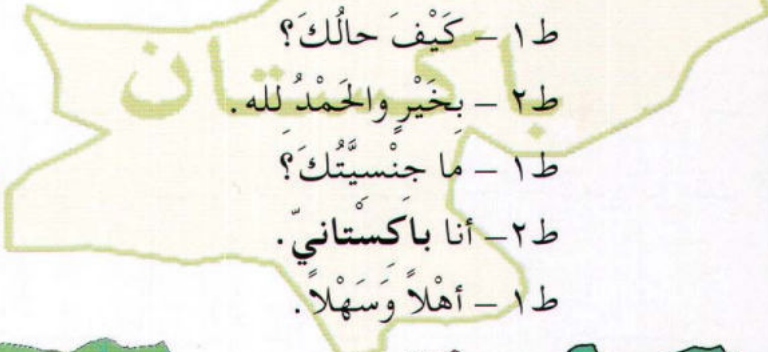 باكستان
ط١ – كَيْفَ حالُكَ؟
ط٢ – بِخَيْرٍ والحَمْدُ لِله.
ط١ – ما جِنْسِيَّتُكَ؟
ط٢ – أنا باكِسْتانيّ.
ط١ – أهْلاً وَسَهْلاً.